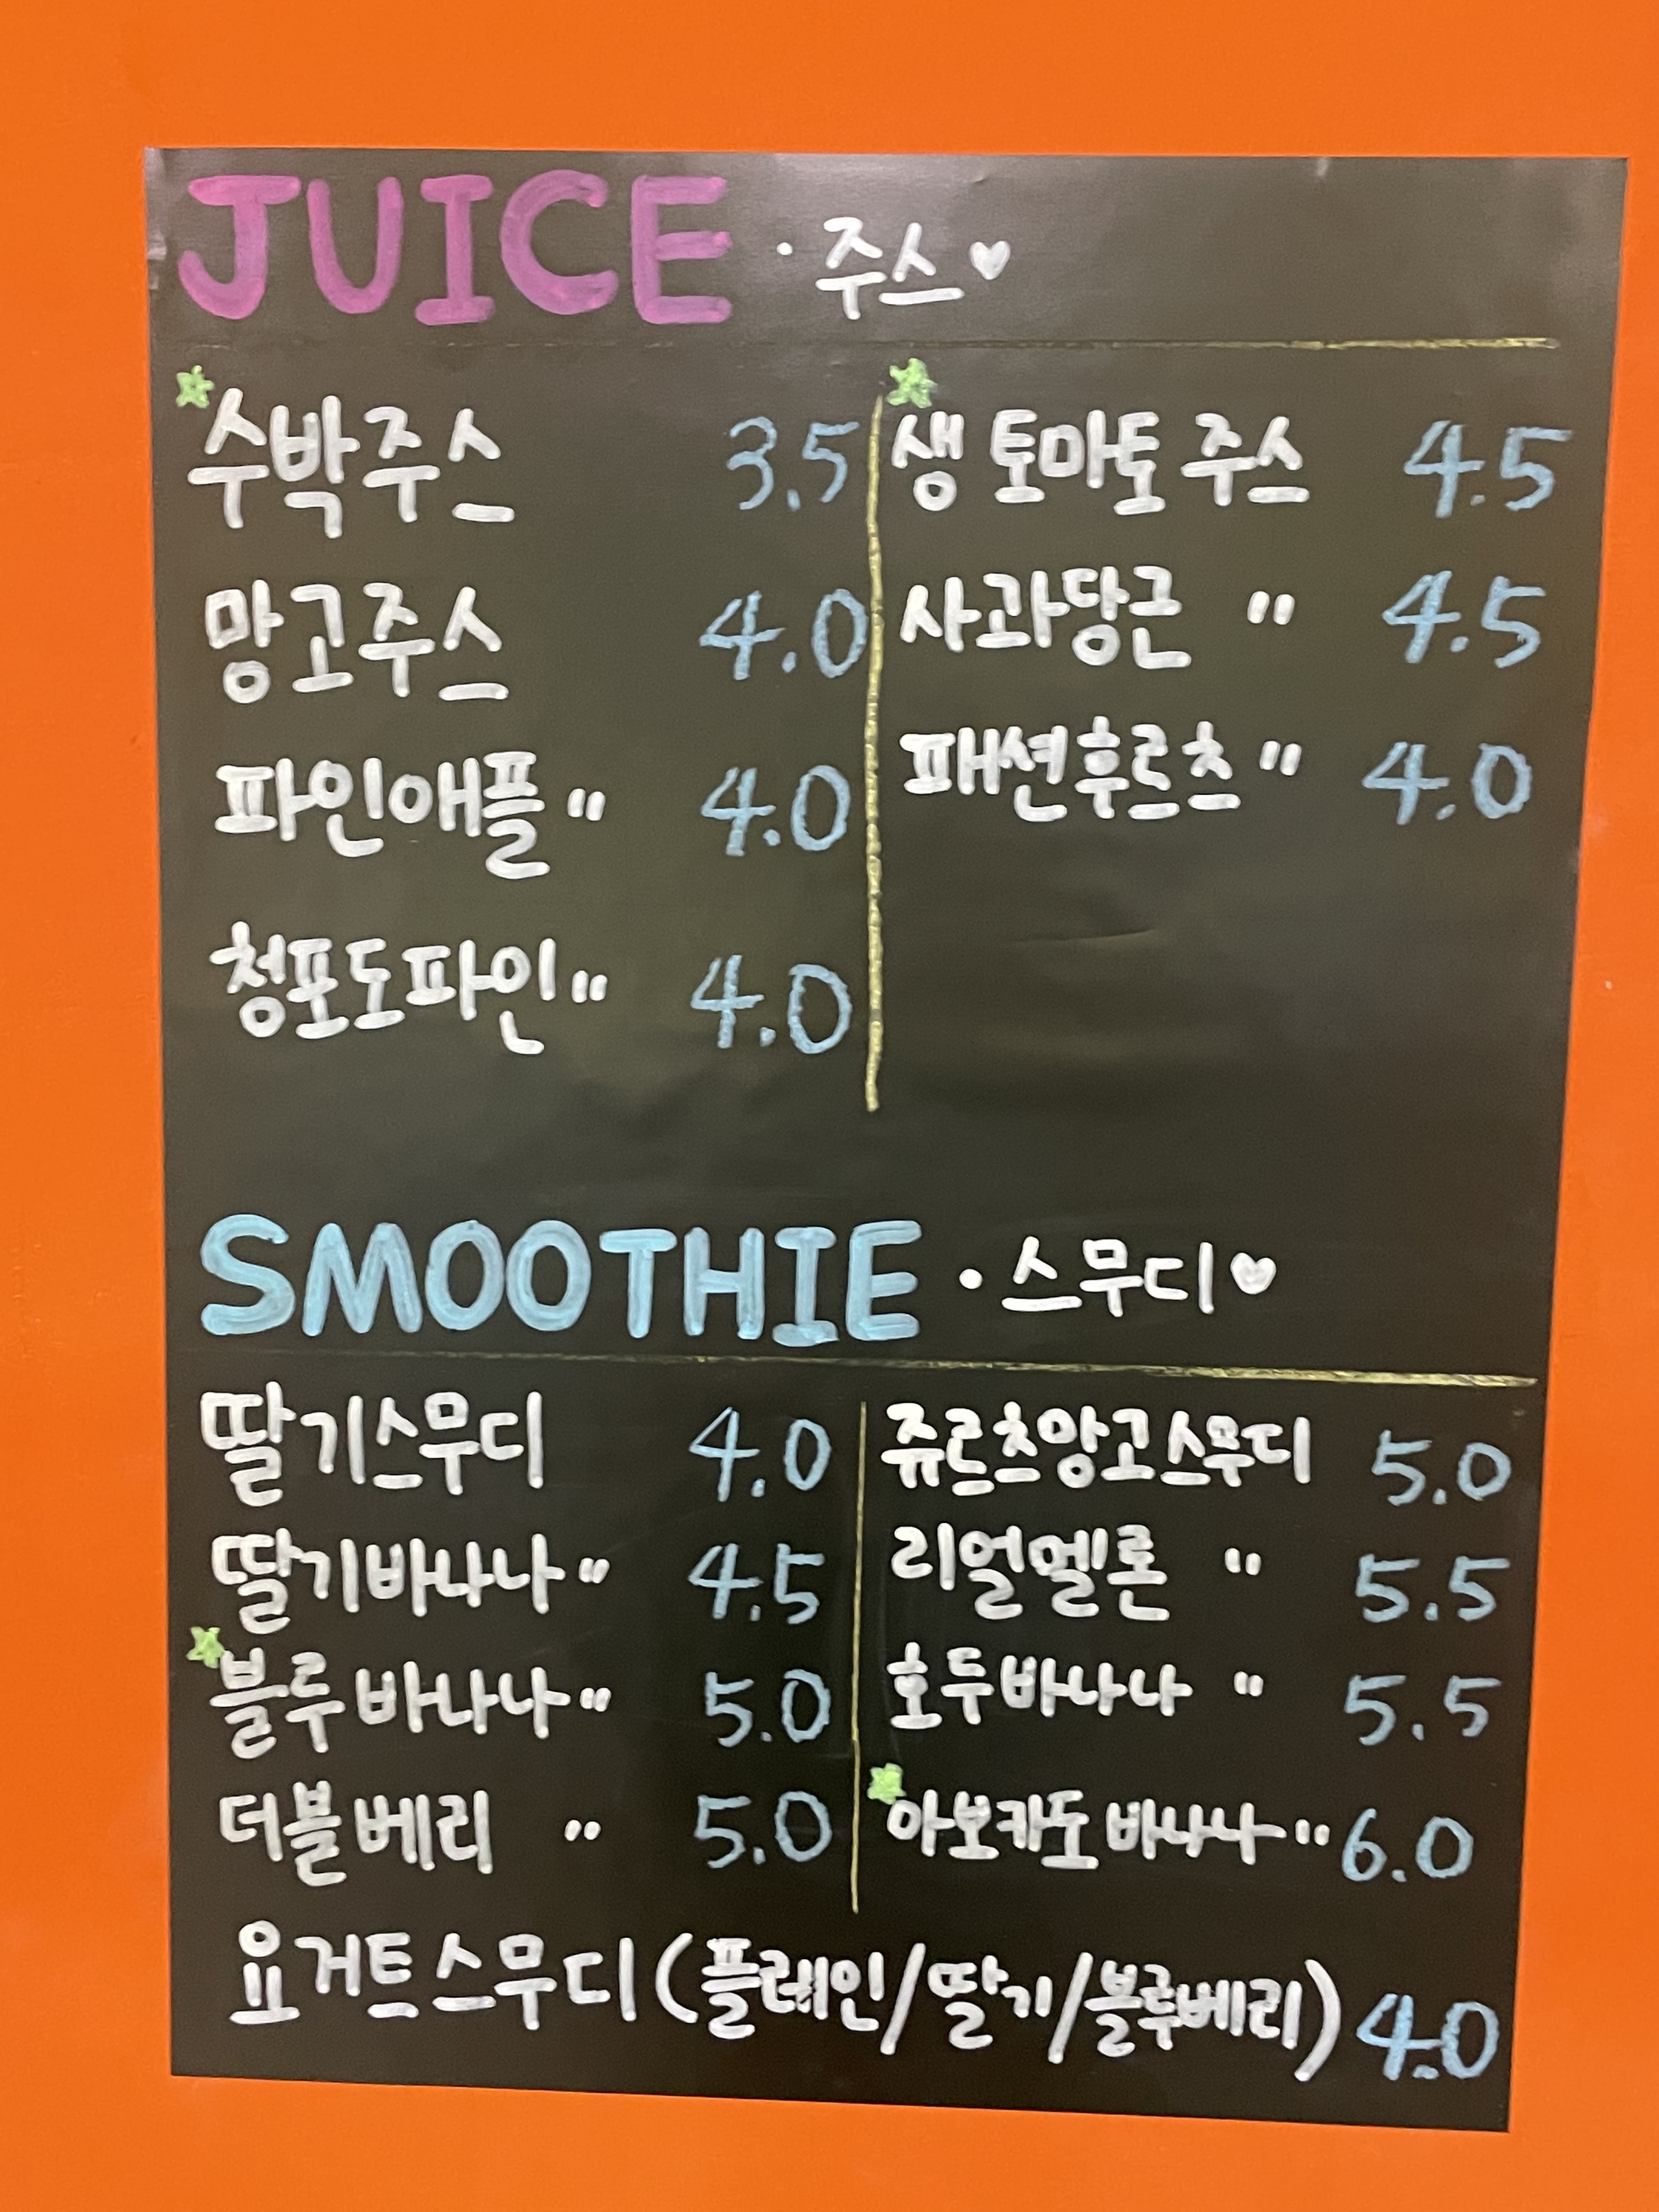 JUICE · 주스♥
수박주스 3.5
망고주스 4.0
파인애플 〃 4.0
청포도파인 〃 4.0
생 토마토 주스 4.5
사과당근 〃 4.5
패션후르츠 〃 4.0
SMOOTHIE · 스무디♥
딸기스무디 4.0
딸기바나나 〃 4.5
블루바나나 〃 5.0
더블베리 〃 5.0
쥬르츠망고스무디 5.0
리얼멜론 〃 5.5
호두바나나 〃 5.5
아보카도 바나나 〃 6.0
요거트스무디(플레인/딸기/블루베리) 4.0